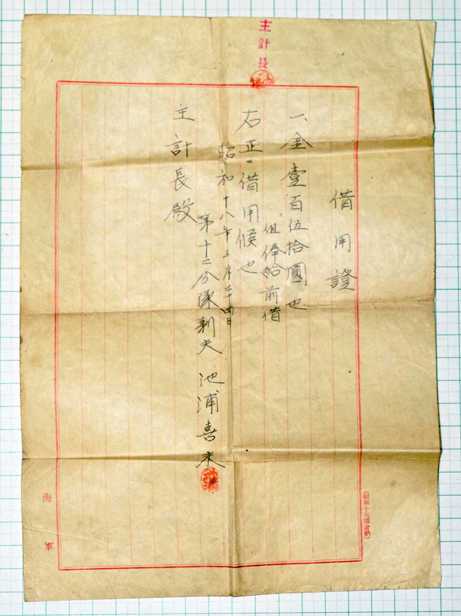 主計長
借用證
一、金壹百伍拾圓也
但俸給前借
右正ニ借用候也
昭和十八年二月二十四日
第十二分隊剃夫 池浦喜末
主計長殿
海軍